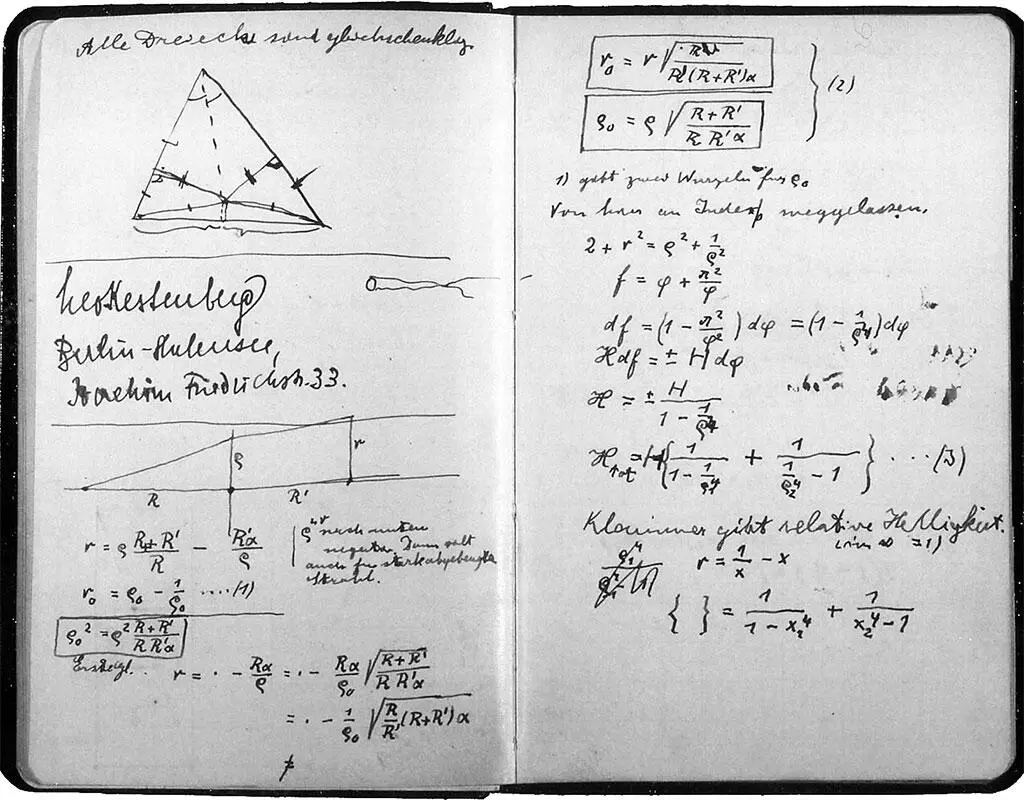 Alle Dreiecke sind gleichschenklig
Leo Kestenberg
Berlin-Halensee,
Joachim Friedrichstr. 33.
ρ
r
R
R'
r = ρ (R+R')/R − R'α/ρ
ρ nach unten
negativ. Dann gilt
auch für stark abgebeugten
Strahl.
r₀ = ρ₀ − 1/ρ₀ ....(1)
ρ₀² = ρ² (R+R')/(R R'α)
r = · − Rα/ρ = · − Rα/ρ₀ √((R+R')/(R R'α))
= · − 1/ρ₀ √(R/R' (R+R')α)
r₀ = r √(R/(R'(R+R')α))
ρ₀ = ρ √((R+R')/(R R'α))
(2)
1) gibt zwei Wurzeln für ρ₀
Von hier an Index weggelassen.
2 + r² = ρ² + 1/ρ²
f = φ + π²/φ
df = (1 − π²/φ²) dφ = (1 − 1/ρ⁴) dφ
H df = ± H dφ
H = ± H/(1 − 1/ρ⁴)
H tot = H {1/(1 − 1/ρ₁⁴) + 1/(1/ρ₂⁴ − 1)} .... (3)
Klammer gibt relative Helligkeit.
r = 1/x − x
{ } = 1/(1 − x₁⁴) + 1/(x₂⁴ − 1)